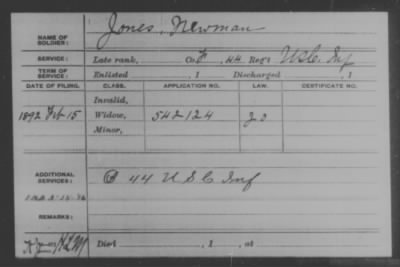 NAME OF SOLDIER: Jones, Newman
SERVICE: Late rank, Co. F, 44 Reg't U S C. Inf
TERM OF SERVICE: Enlisted , 1 Discharged , 1
DATE OF FILING. CLASS. APPLICATION NO. LAW. CERTIFICATE NO.
Invalid,
1892 Feb 15 Widow, 542124
Minor,
ADDITIONAL SERVICES: 44 U S C Inf
REMARKS:
Died , 1 , at